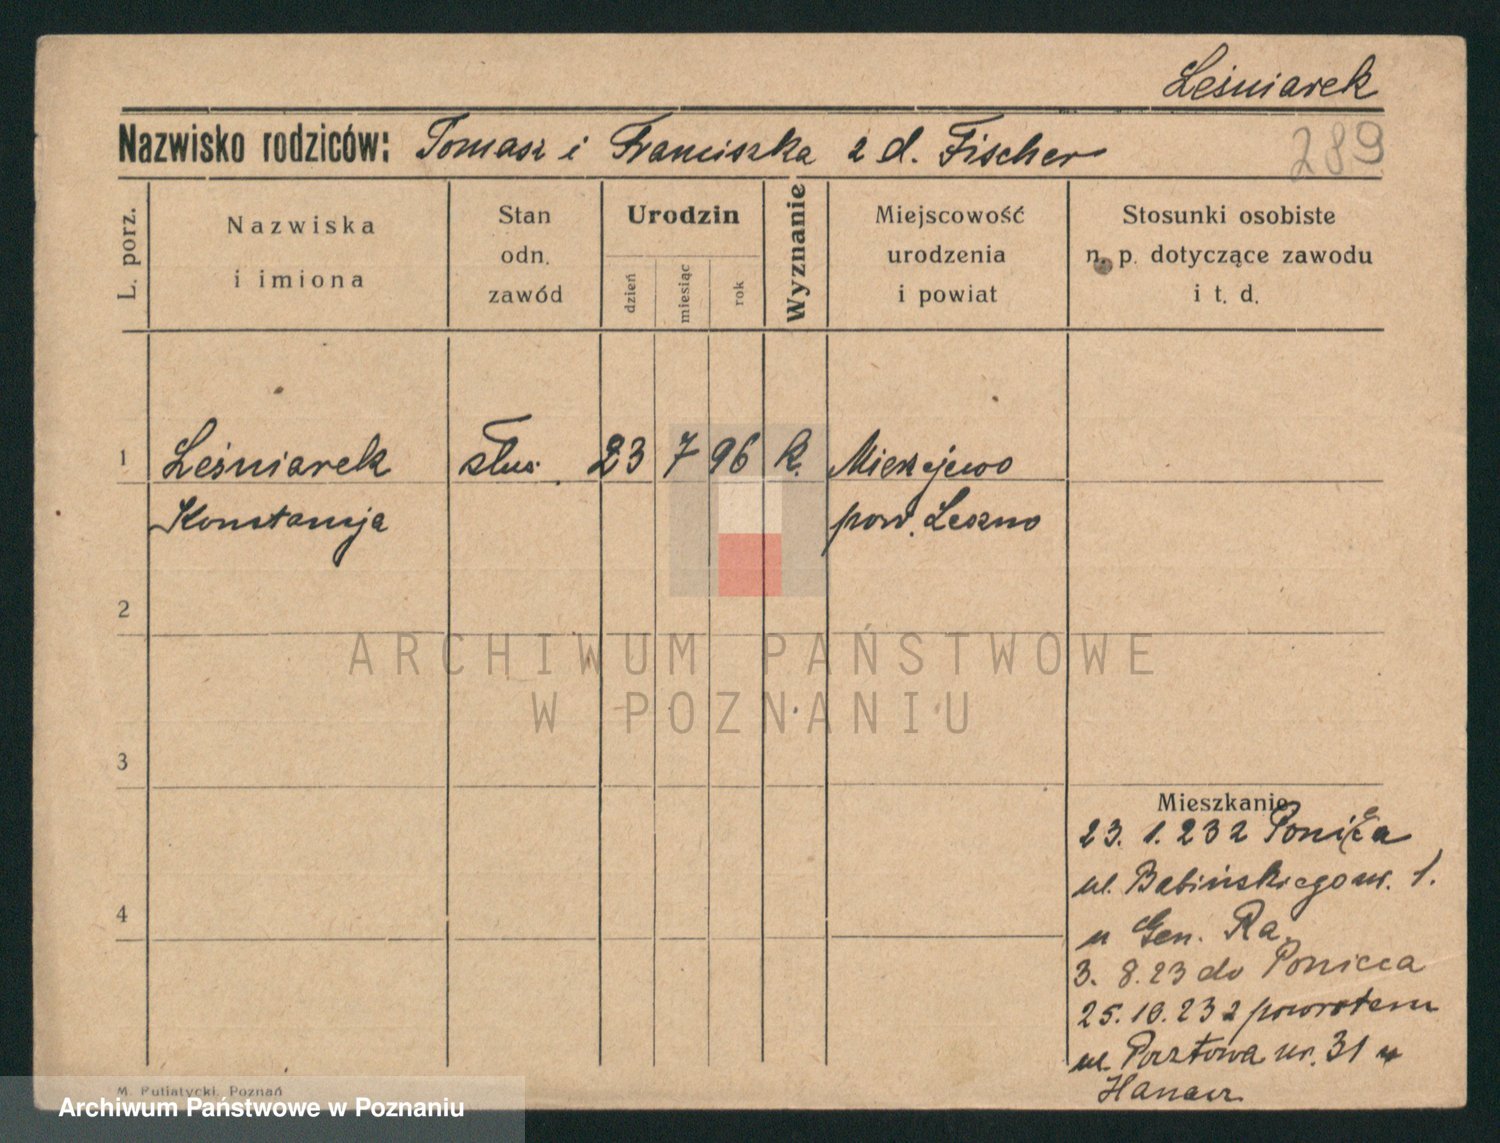 Leśniarek
Nazwisko rodziców: Tomasz i Franciszka z d. Fischer
289
L. porz.
Nazwiska
i imiona
Stan
odn.
zawód
Urodzin
dzień
miesiąc
rok
Wyznanie
Miejscowość
urodzenia
i powiat
Stosunki osobiste
n. p. dotyczące zawodu
i t. d.
1
Leśniarek
Konstancja
służ.
23
7
96
k.
Mierzejewo
pow. Leszno
2
ARCHIWUM PAŃSTWOWE
W POZNANIU
3
4
Mieszkanie
23. 1. 23 z Poniéca
ul. Babińskiego nr. 1.
u Gen. Ra.
3. 8. 23 do Poniéca
25. 10. 23 z powrotem
ul. Pocztowa nr. 31 u
M. Putiatycki, Poznań
Archiwum Państwowe w Poznaniu